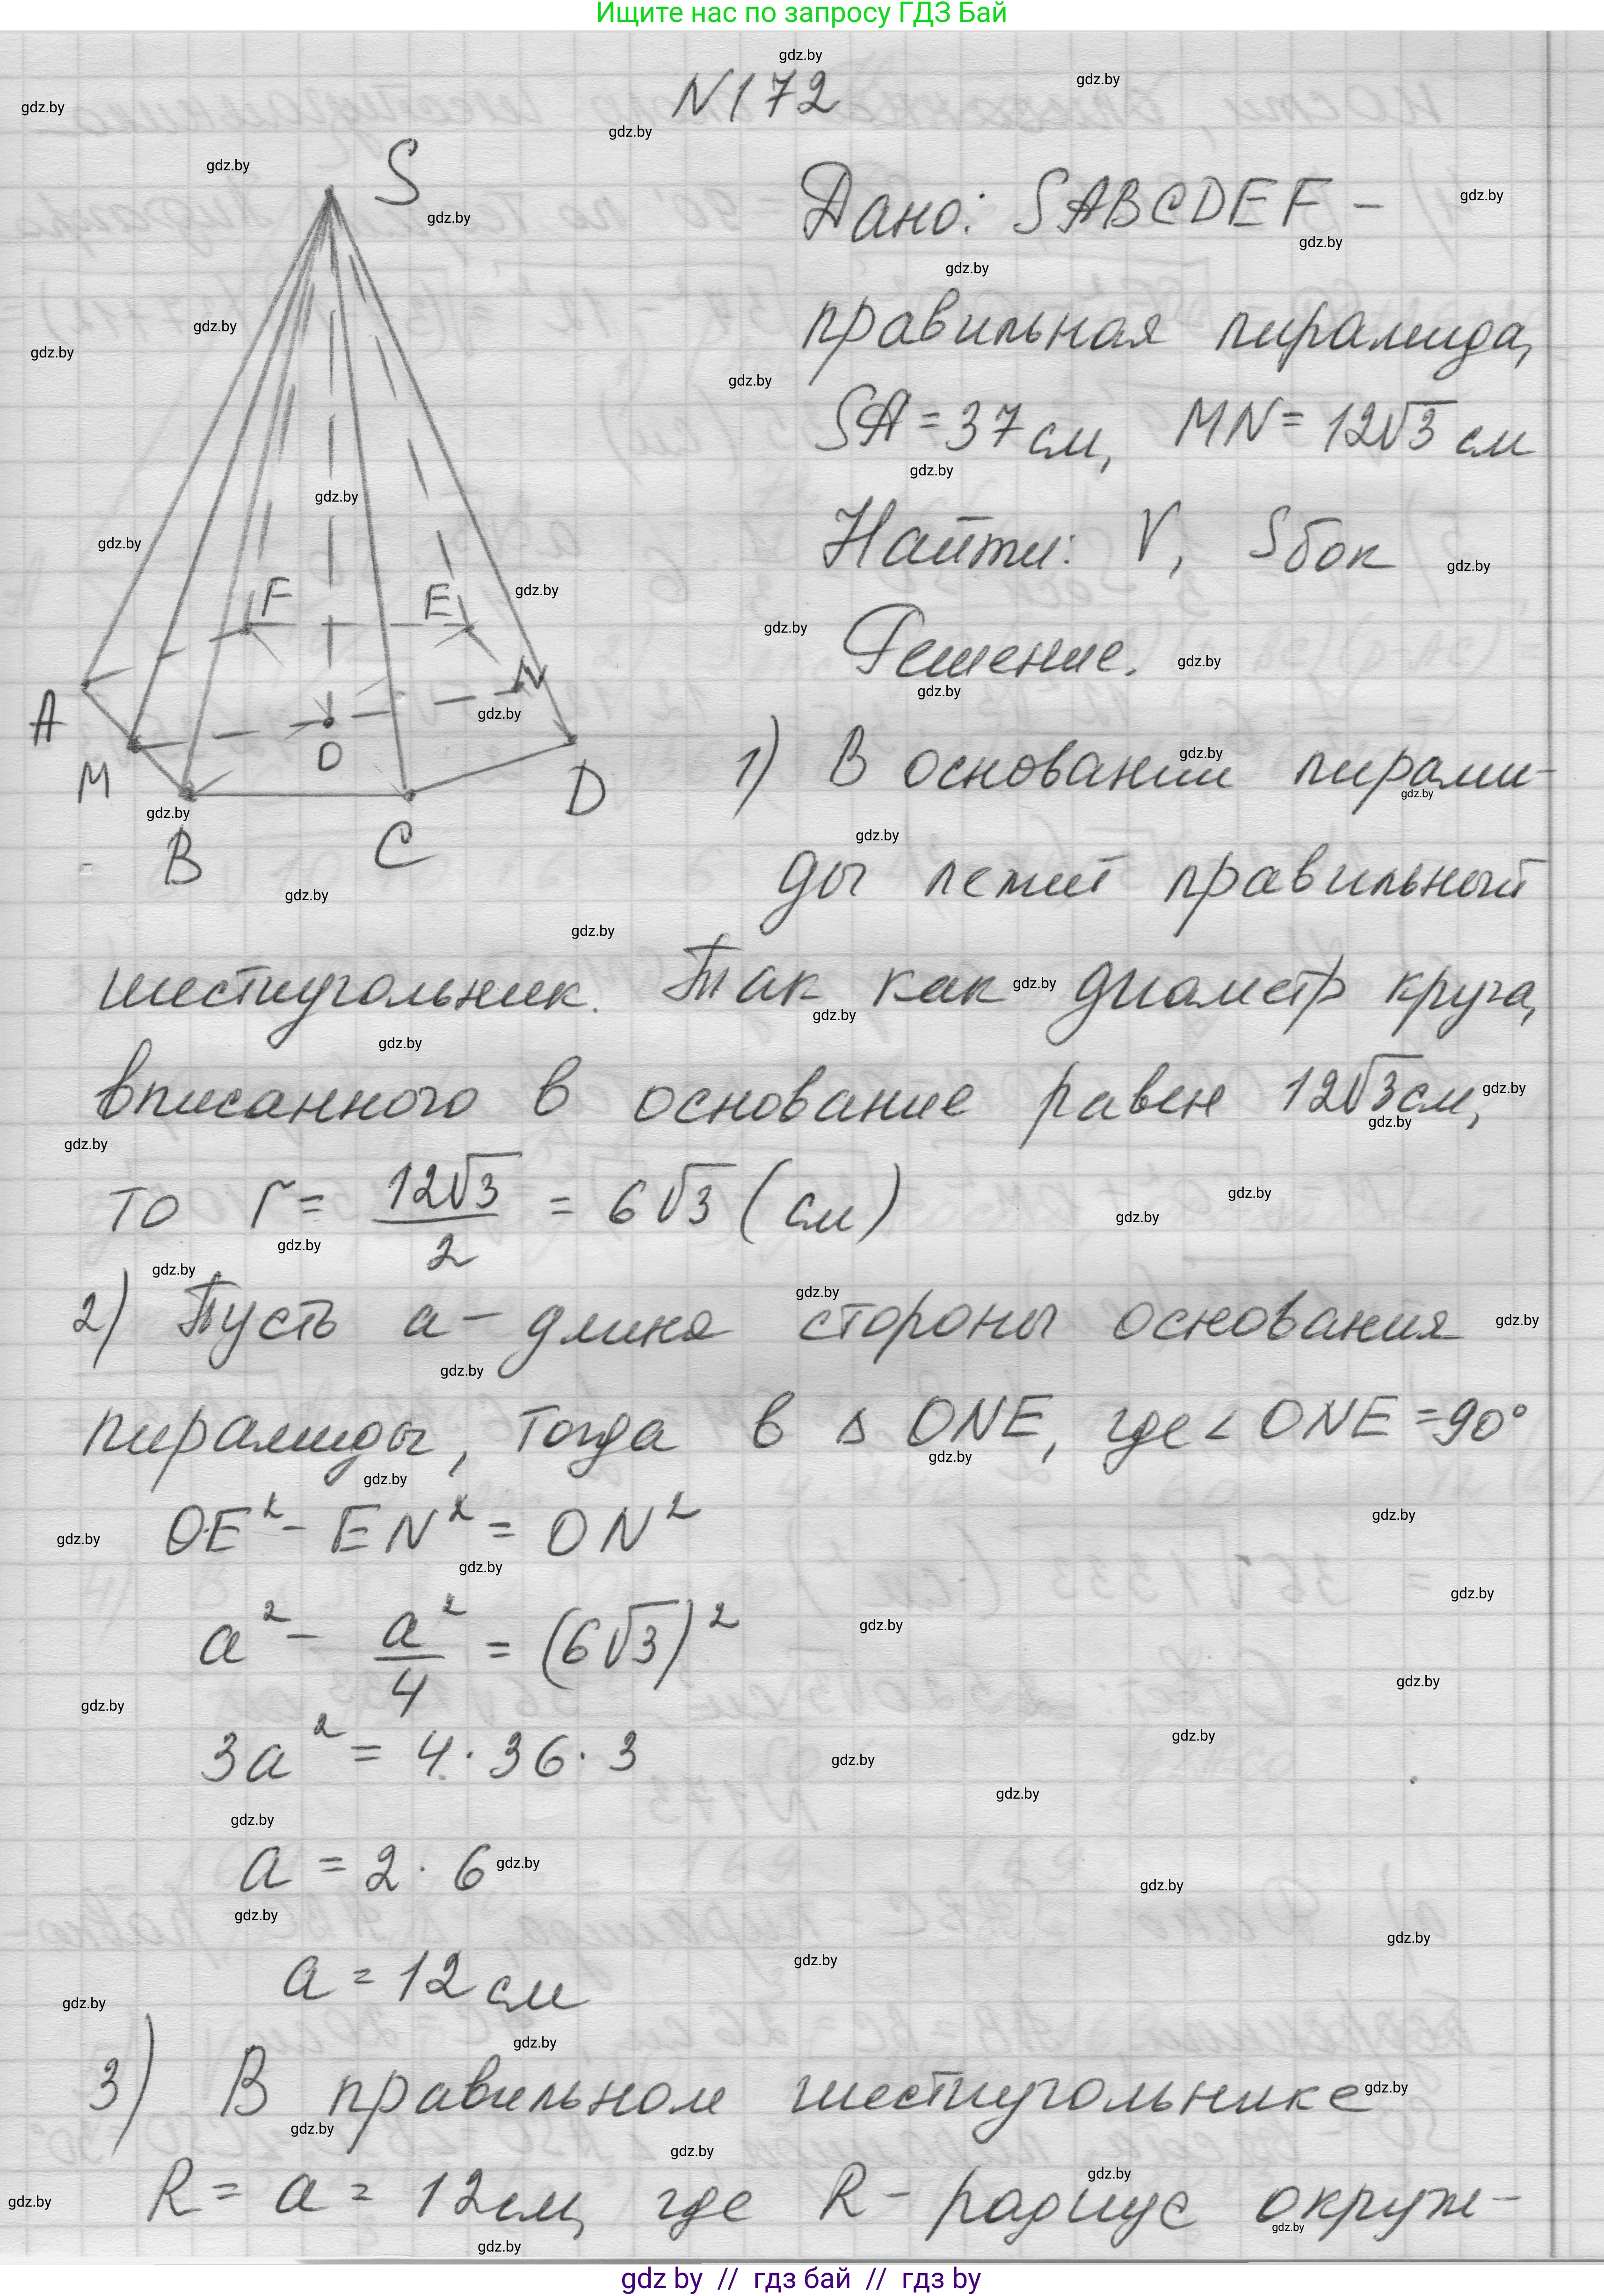 Ищите нас по запросу ГДЗ Бай
N172
S
A
M
B
C
D
E
F
N
O
Дано: SABCDEF –
правильная пирамида,
SA = 37 см, MN = 12√3 см
Найти: V, Sбок
Решение.
1) В основании пирами-
ды лежит правильный
шестиугольник. Так как диаметр круга,
вписанного в основание равен 12√3 см,
то r = 12√3/2 = 6√3 (см)
2) Пусть a – длина стороны основания
пирамиды, тогда в △ ONE, где ∠ ONE = 90°
OE² – EN² = ON²
a² – a²/4 = (6√3)²
3a² = 4 · 36 · 3
a = 2 · 6
a = 12 см
3) В правильном шестиугольнике
R = a = 12 см, где R – радиус окруж-
gdz by // гдз бай // гдз by